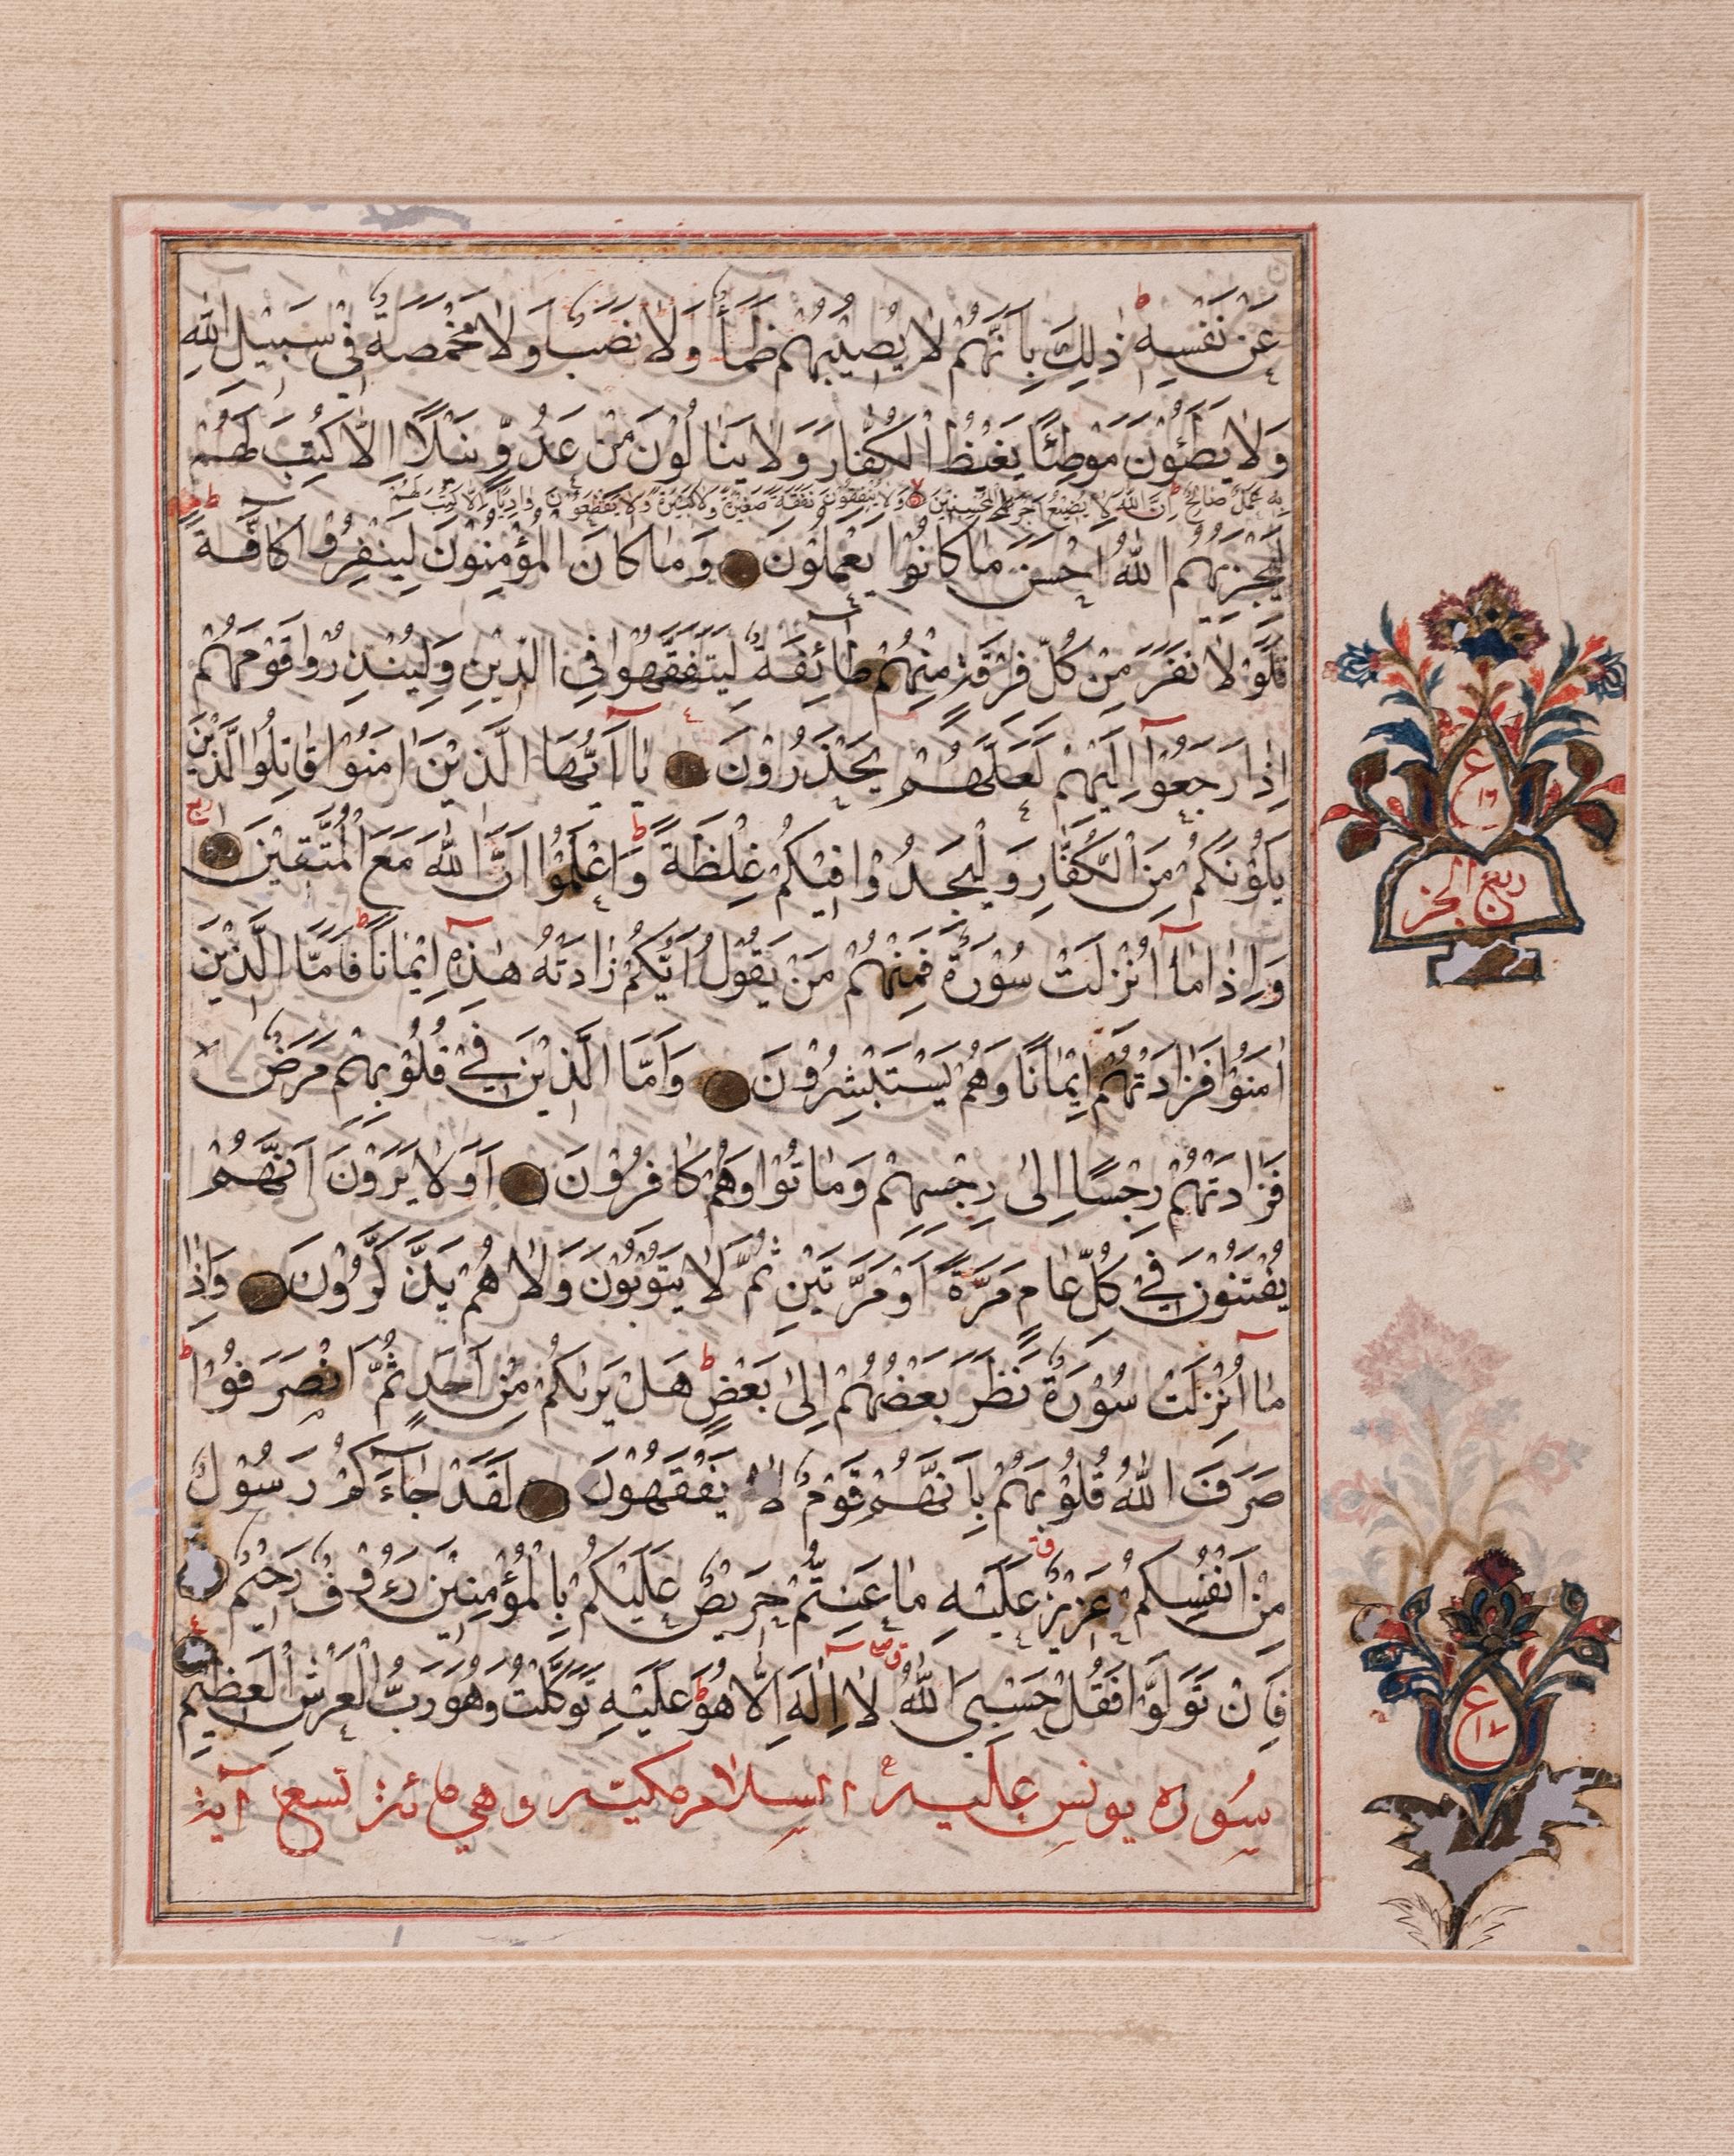 عَنْ نَفْسِهٖ ذٰلِكَ بِاَنَّهُمْ لَا يُصِيْبُهُمْ ظَمَأٌ وَلَا نَصَبٌ وَلَا مَخْمَصَةٌ فِيْ سَبِيْلِ اللهِ
وَلَا يَطَئُوْنَ مَوْطِئًا يَغِيْظُ الْكُفَّارَ وَلَا يَنَالُوْنَ مِنْ عَدُوٍّ نَيْلًا اِلَّا كُتِبَ لَهُمْ
بِهٖ عَمَلٌ صَالِحٌ ط اِنَّ اللهَ لَا يُضِيْعُ اَجْرَ الْمُحْسِنِيْنَ وَلَا يُنْفِقُوْنَ نَفَقَةً صَغِيْرَةً وَلَا كَبِيْرَةً وَلَا يَقْطَعُوْنَ وَادِيًا اِلَّا كُتِبَ لَهُمْ
لِيَجْزِيَهُمُ اللهُ اَحْسَنَ مَا كَانُوْا يَعْمَلُوْنَ وَمَا كَانَ الْمُؤْمِنُوْنَ لِيَنْفِرُوْا كَافَّةً ط
فَلَوْلَا نَفَرَ مِنْ كُلِّ فِرْقَةٍ مِنْهُمْ طَائِفَةٌ لِيَتَفَقَّهُوْا فِي الدِّيْنِ وَلِيُنْذِرُوْا قَوْمَهُمْ
اِذَا رَجَعُوْٓا اِلَيْهِمْ لَعَلَّهُمْ يَحْذَرُوْنَ يَآ اَيُّهَا الَّذِيْنَ اٰمَنُوْا قَاتِلُوا الَّذِيْنَ
يَلُوْنَكُمْ مِنَ الْكُفَّارِ وَلْيَجِدُوْا فِيْكُمْ غِلْظَةً ط وَاعْلَمُوْا اَنَّ اللهَ مَعَ الْمُتَّقِيْنَ
وَاِذَا مَآ اُنْزِلَتْ سُوْرَةٌ فَمِنْهُمْ مَنْ يَقُوْلُ اَيُّكُمْ زَادَتْهُ هٰذِهٖٓ اِيْمَانًا ط فَاَمَّا الَّذِيْنَ
اٰمَنُوْا فَزَادَتْهُمْ اِيْمَانًا وَهُمْ يَسْتَبْشِرُوْنَ وَاَمَّا الَّذِيْنَ فِيْ قُلُوْبِهِمْ مَرَضٌ
فَزَادَتْهُمْ رِجْسًا اِلٰى رِجْسِهِمْ وَمَاتُوْا وَهُمْ كَافِرُوْنَ اَوَلَا يَرَوْنَ اَنَّهُمْ
يُفْتَنُوْنَ فِيْ كُلِّ عَامٍ مَرَّةً اَوْ مَرَّتَيْنِ ثُمَّ لَا يَتُوْبُوْنَ وَلَا هُمْ يَذَّكَّرُوْنَ وَاِذَا
مَآ اُنْزِلَتْ سُوْرَةٌ نَظَرَ بَعْضُهُمْ اِلٰى بَعْضٍ ط هَلْ يَرٰىكُمْ مِنْ اَحَدٍ ثُمَّ انْصَرَفُوْا ط
صَرَفَ اللهُ قُلُوْبَهُمْ بِاَنَّهُمْ قَوْمٌ لَا يَفْقَهُوْنَ لَقَدْ جَآءَكُمْ رَسُوْلٌ
مِنْ اَنْفُسِكُمْ عَزِيْزٌ عَلَيْهِ مَا عَنِتُّمْ حَرِيْصٌ عَلَيْكُمْ بِالْمُؤْمِنِيْنَ رَءُوْفٌ رَحِيْمٌ
فَاِنْ تَوَلَّوْا فَقُلْ حَسْبِيَ اللهُ لَآ اِلٰهَ اِلَّا هُوَ ط عَلَيْهِ تَوَكَّلْتُ وَهُوَ رَبُّ الْعَرْشِ الْعَظِيْمِ
سُوره يونس عليه السلام مكية وهي مائة تسع آية
ع
١٦
ربع الجز
ع
١٧